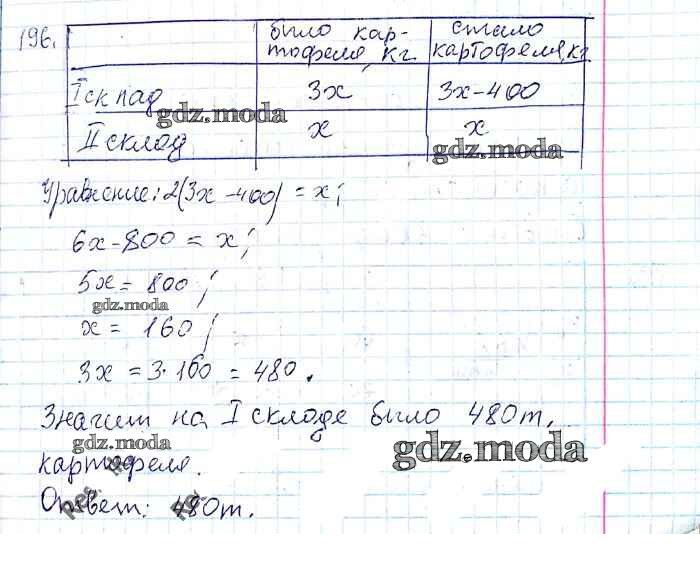 196.
было кар-
тофеля, кг
стало
картофеля, кг
I склад 3x 3x-400
gdz.moda
II склад x x
gdz.moda
Уравнение: 2(3x-400) = x;
6x-800 = x;
5x = 800;
gdz.moda
x = 160;
3x = 3·160 = 480.
Значит на I складе было 480т.
gdz.moda
gdz.moda
картофеля.
Ответ: 480т.